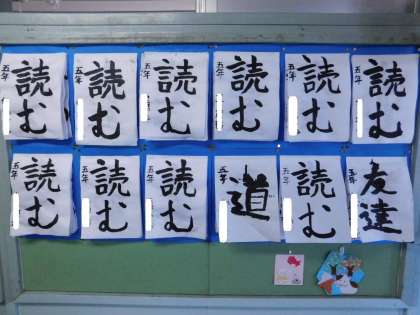 読む 五年
読む 五年
読む 五年
読む 五年
読む 五年
読む 五年
読む 五年
読む 五年
読む 五年
道 五年
読む 五年
友達 五年